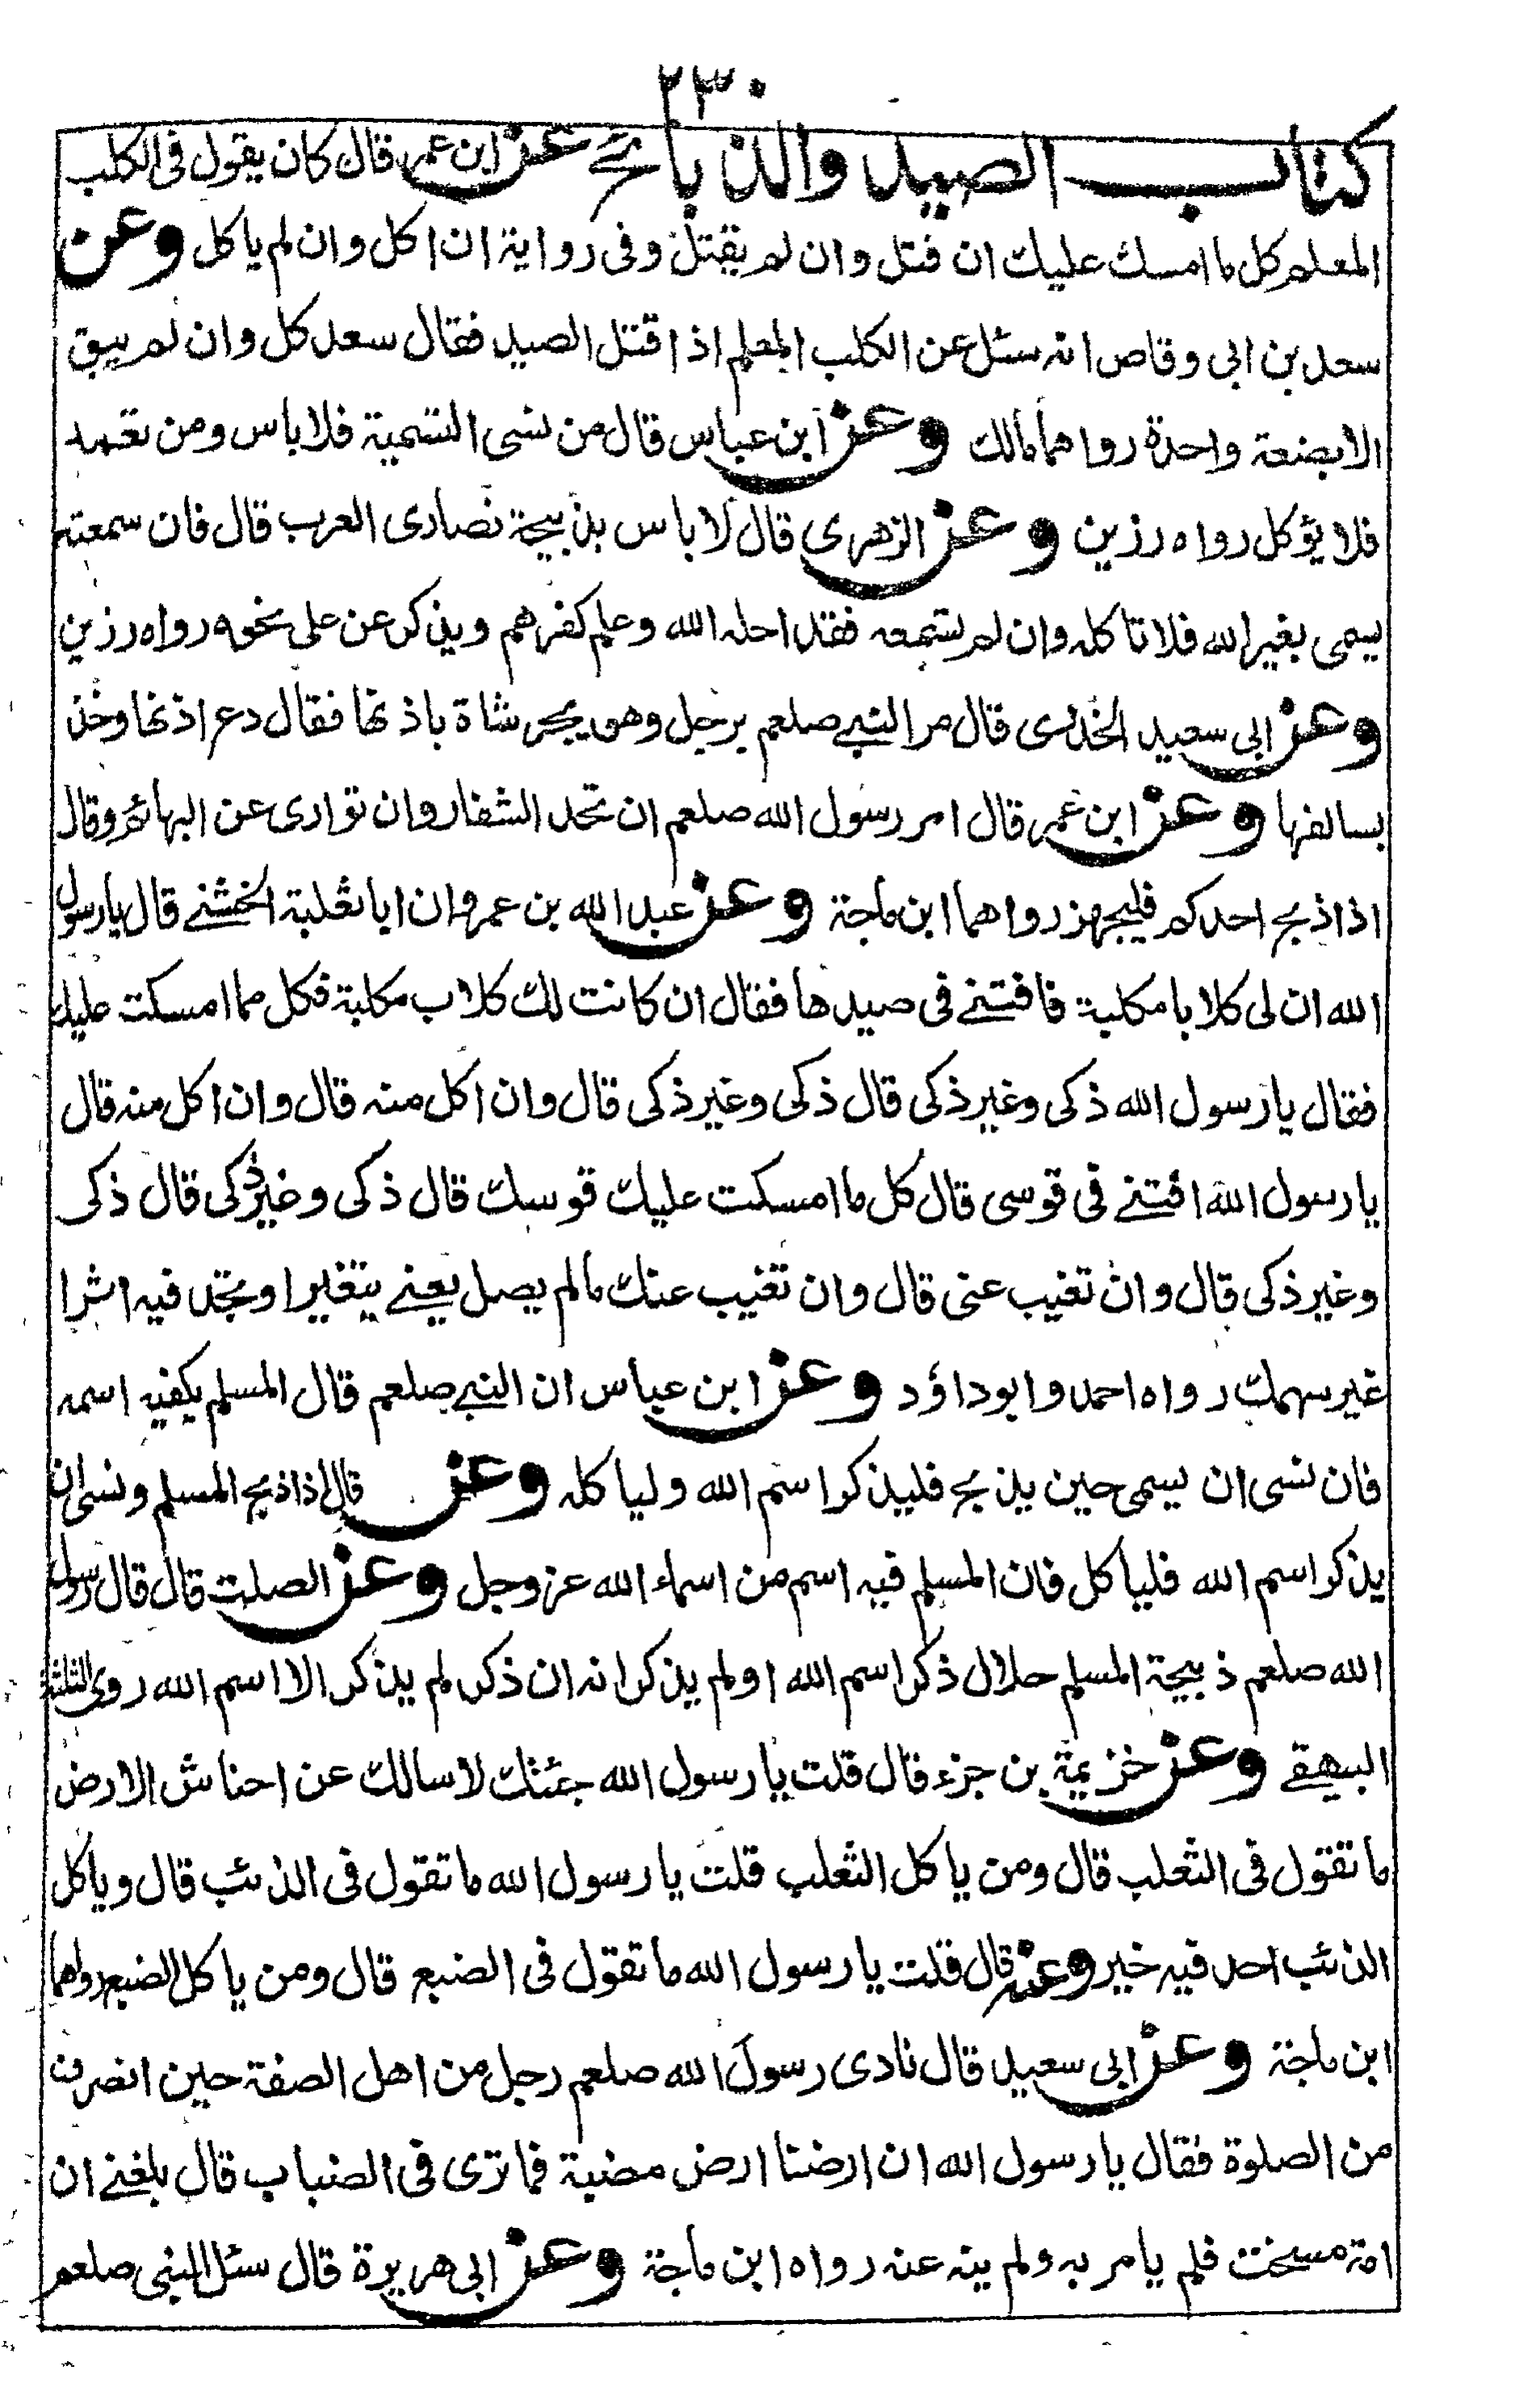 ٢٣٠
كتاب الصيد والذبائح عن ابن عمر قال كان يقول فى الكلب
المعلم كل ما امسك عليك ان قتل وان لم يقتل وفى رواية ان اكل وان لم ياكل وعن
سعد بن ابى وقاص انه سئل عن الكلب المعلم اذا قتل الصيد فقال سعد كل وان لم يبق
الا بضعة واحدة رواهما مالك وعن ابن عباس قال من نسى التسمية فلا باس ومن تعمد
فلا يؤكل رواه رزين وعن الزهرى قال لا باس بذبيحة نصارى العرب قال فان سمعته
يسمى بغير الله فلا تاكله وان لم تسمعه فقد احله الله وعلم كفرهم ويذكر عن على نحوه رواه رزين
وعن ابى سعيد الخدرى قال مر النبى صلعم برجل وهو يجر شاة باذنها فقال دع اذنها وخذ
بسالفها وعن ابن عمر قال امر رسول الله صلعم ان تحد الشفار وان توارى عن البهائم وقال
اذا ذبح احدكم فليجهز رواهما ابن ماجة وعن عبد الله بن عمرو ان ابا ثعلبة الخشنى قال يا رسول
الله ان لى كلابا مكلبة فافتنى فى صيدها فقال ان كانت لك كلاب مكلبة فكل مما امسكت عليك
فقال يا رسول الله ذكى وغير ذكى قال ذكى وغير ذكى قال وان اكل منه قال وان اكل منه قال
يا رسول الله افتنى فى قوسى قال كل ما امسكت عليك قوسك قال ذكى وغير ذكى قال ذكى
وغير ذكى قال وان تغيب عنى قال وان تغيب عنك ما لم يصل يعنى يتغير او تجد فيه اثرا
غير سهمك رواه احمد وابو داؤد وعن ابن عباس ان النبى صلعم قال المسلم يكفيه اسمه
فان نسى ان يسمى حين يذبح فليذكر اسم الله ولياكله وعن قال اذا ذبح المسلم ونسى ان
يذكر اسم الله فلياكل فان المسلم فيه اسم من اسماء الله عز وجل وعن الصلت قال قال رسول
الله صلعم ذبيحة المسلم حلال ذكر اسم الله او لم يذكر انه ان ذكر لم يذكر الا اسم الله روى الثلثة
البيهقى وعن خزيمة بن جزء قال قلت يا رسول الله جئتك لاسالك عن احناش الارض
ما تقول فى الثعلب قال ومن ياكل الثعلب قلت يا رسول الله ما تقول فى الذئب قال وياكل
الذئب احد فيه خير وعنه قال قلت يا رسول الله ما تقول فى الضبع قال ومن ياكل الضبع رواهما
ابن ماجة وعن ابى سعيد قال نادى رسول الله صلعم رجل من اهل الصفة حين انصرف
من الصلوة فقال يا رسول الله ان ارضنا ارض مضبة فما ترى فى الضباب قال بلغنى ان
امة مسخت فلم يامر به ولم ينه عنه رواه ابن ماجة وعن ابى هريرة قال سئل النبى صلعم